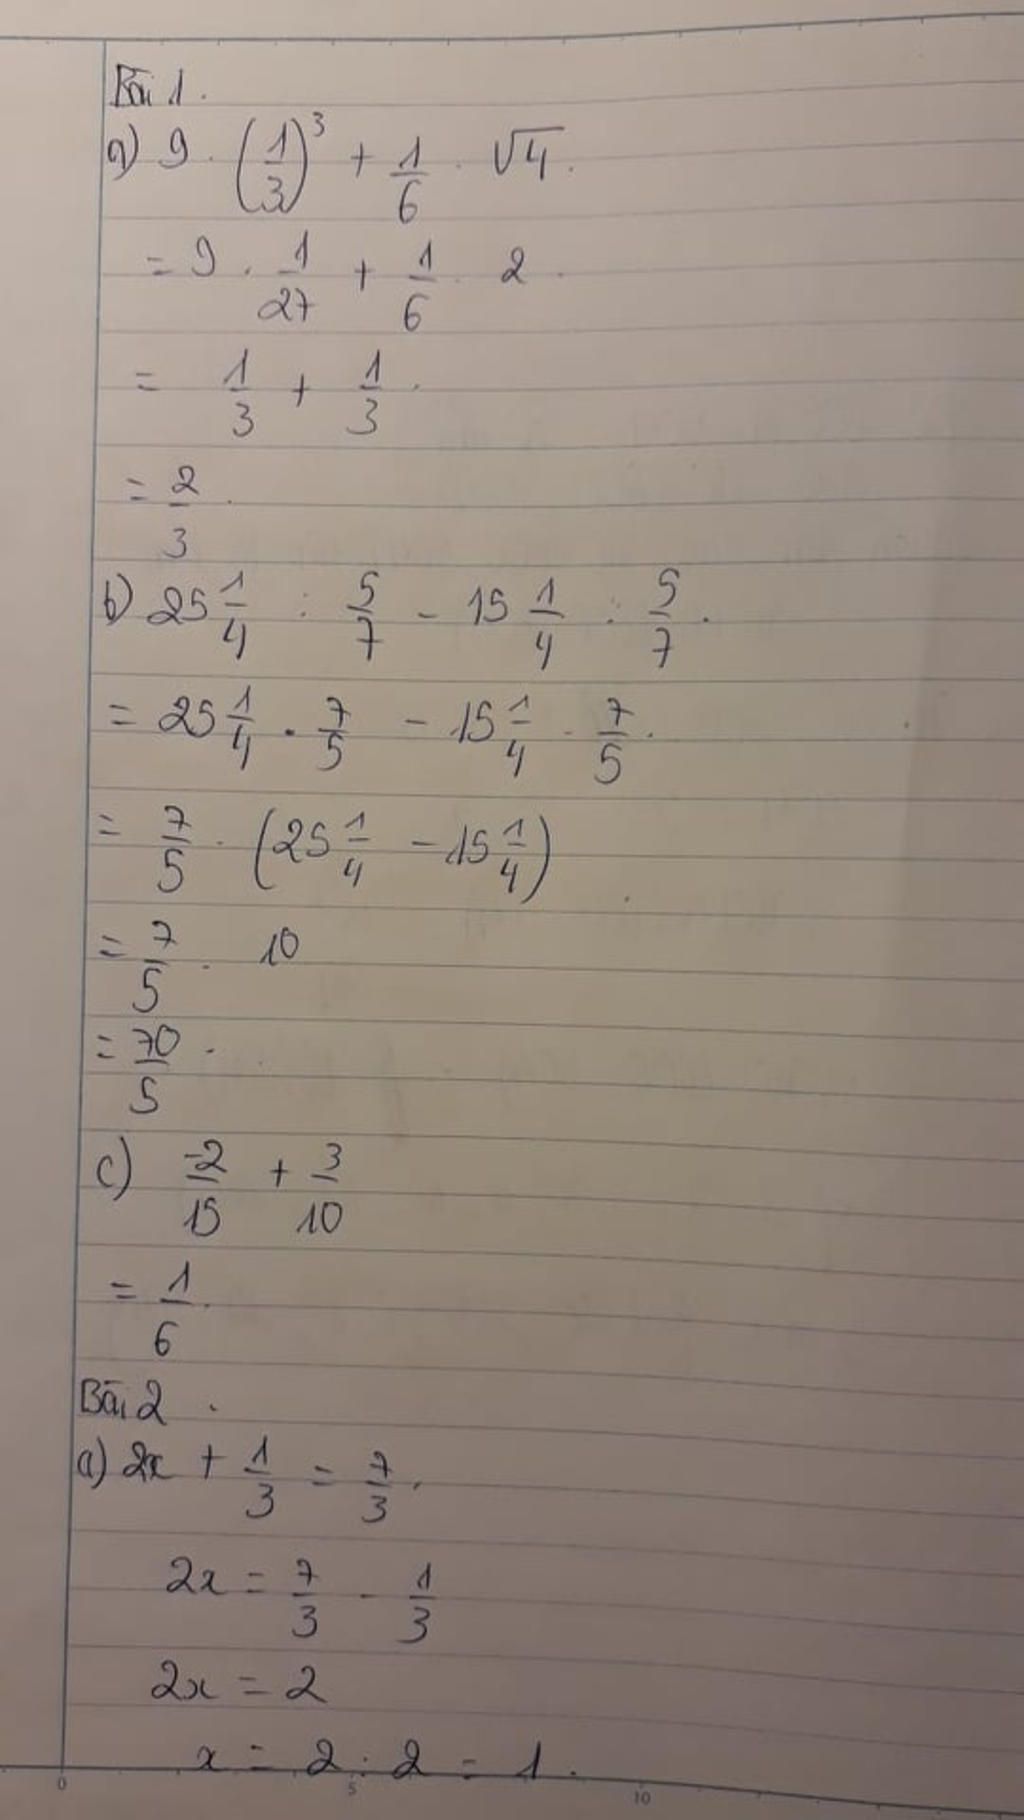 Bài 1.
a) 9 . (1/3)³ + 1/6 . √4.
= 9 . 1/27 + 1/6 . 2.
= 1/3 + 1/3.
= 2/3.
b) 25 1/4 : 5/7 - 15 1/4 : 5/7.
= 25 1/4 . 7/5 - 15 1/4 . 7/5.
= 7/5 . (25 1/4 - 15 1/4)
= 7/5 . 10
= 70/5.
c) -2/15 + 3/10
= 1/6.
Bài 2.
a) 2x + 1/3 = 7/3.
2x = 7/3 - 1/3
2x = 2
x = 2 : 2 = 1.
0 5 10